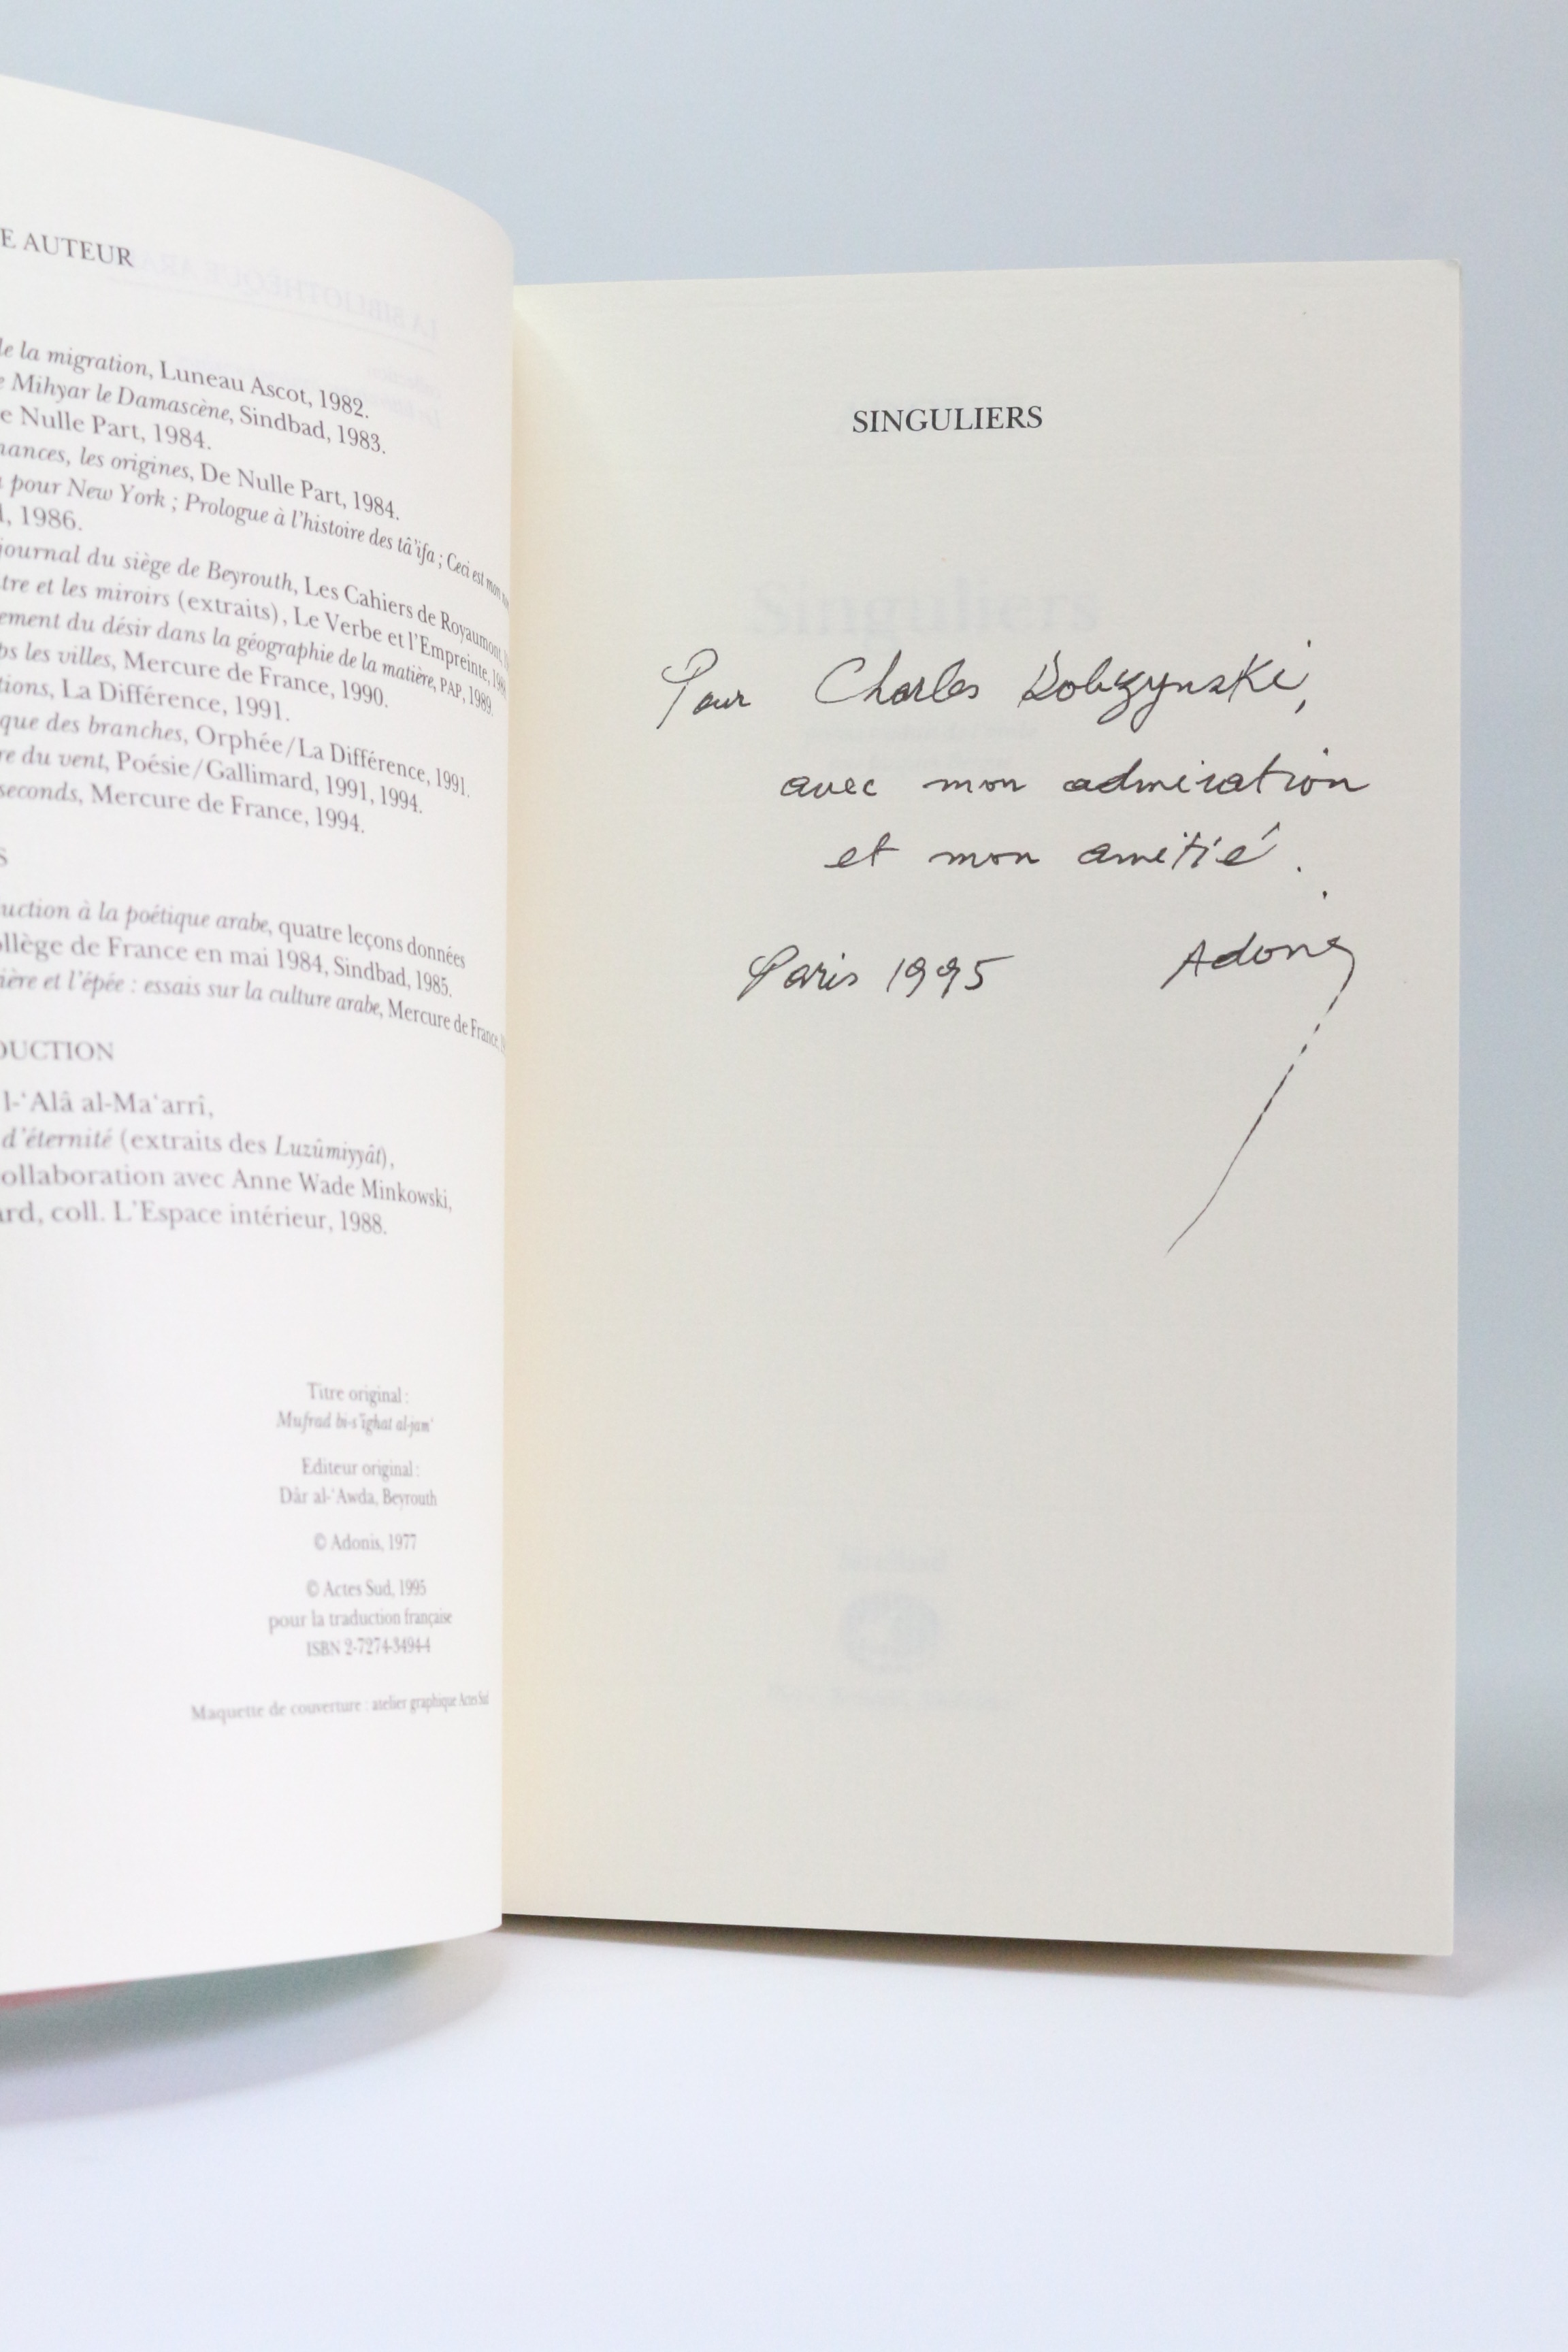 E AUTEUR
de la migration, Luneau Ascot, 1982.
Mihyar le Damascène, Sindbad, 1983.
e Nulle Part, 1984.
les origines, De Nulle Part, 1984.
pour New York ; Prologue à l'histoire des tâ'ifa ; Ceci est mon
1986.
journal du siège de Beyrouth, Les Cahiers de Royaumont,
tre et les miroirs (extraits), Le Verbe et l'Empreinte,
ement du désir dans la géographie de la matière, PAP, 1989.
ps les villes, Mercure de France, 1990.
tions, La Différence, 1991.
que des branches, Orphée/La Différence, 1991.
re du vent, Poésie/Gallimard, 1991, 1994.
seconds, Mercure de France, 1994.
S
uction à la poétique arabe, quatre leçons données
ollège de France en mai 1984, Sindbad, 1985.
ière et l'épée : essais sur la culture arabe, Mercure de France,
DUCTION
l-'Alâ al-Ma'arrî,
d'éternité (extraits des Luzûmiyyât),
ollaboration avec Anne Wade Minkowski,
ard, coll. L'Espace intérieur, 1988.
Titre original :
Mufrad bi-s'îghat al-jam'
Editeur original :
Dâr al-'Awda, Beyrouth
© Adonis, 1977
© Actes Sud, 1995
pour la traduction française
ISBN 2-7274-3494-4
Maquette de couverture : atelier graphique Actes Sud
SINGULIERS
Pour Charles Dobzynski,
avec mon admiration
et mon amitié.
Paris 1995 Adonis